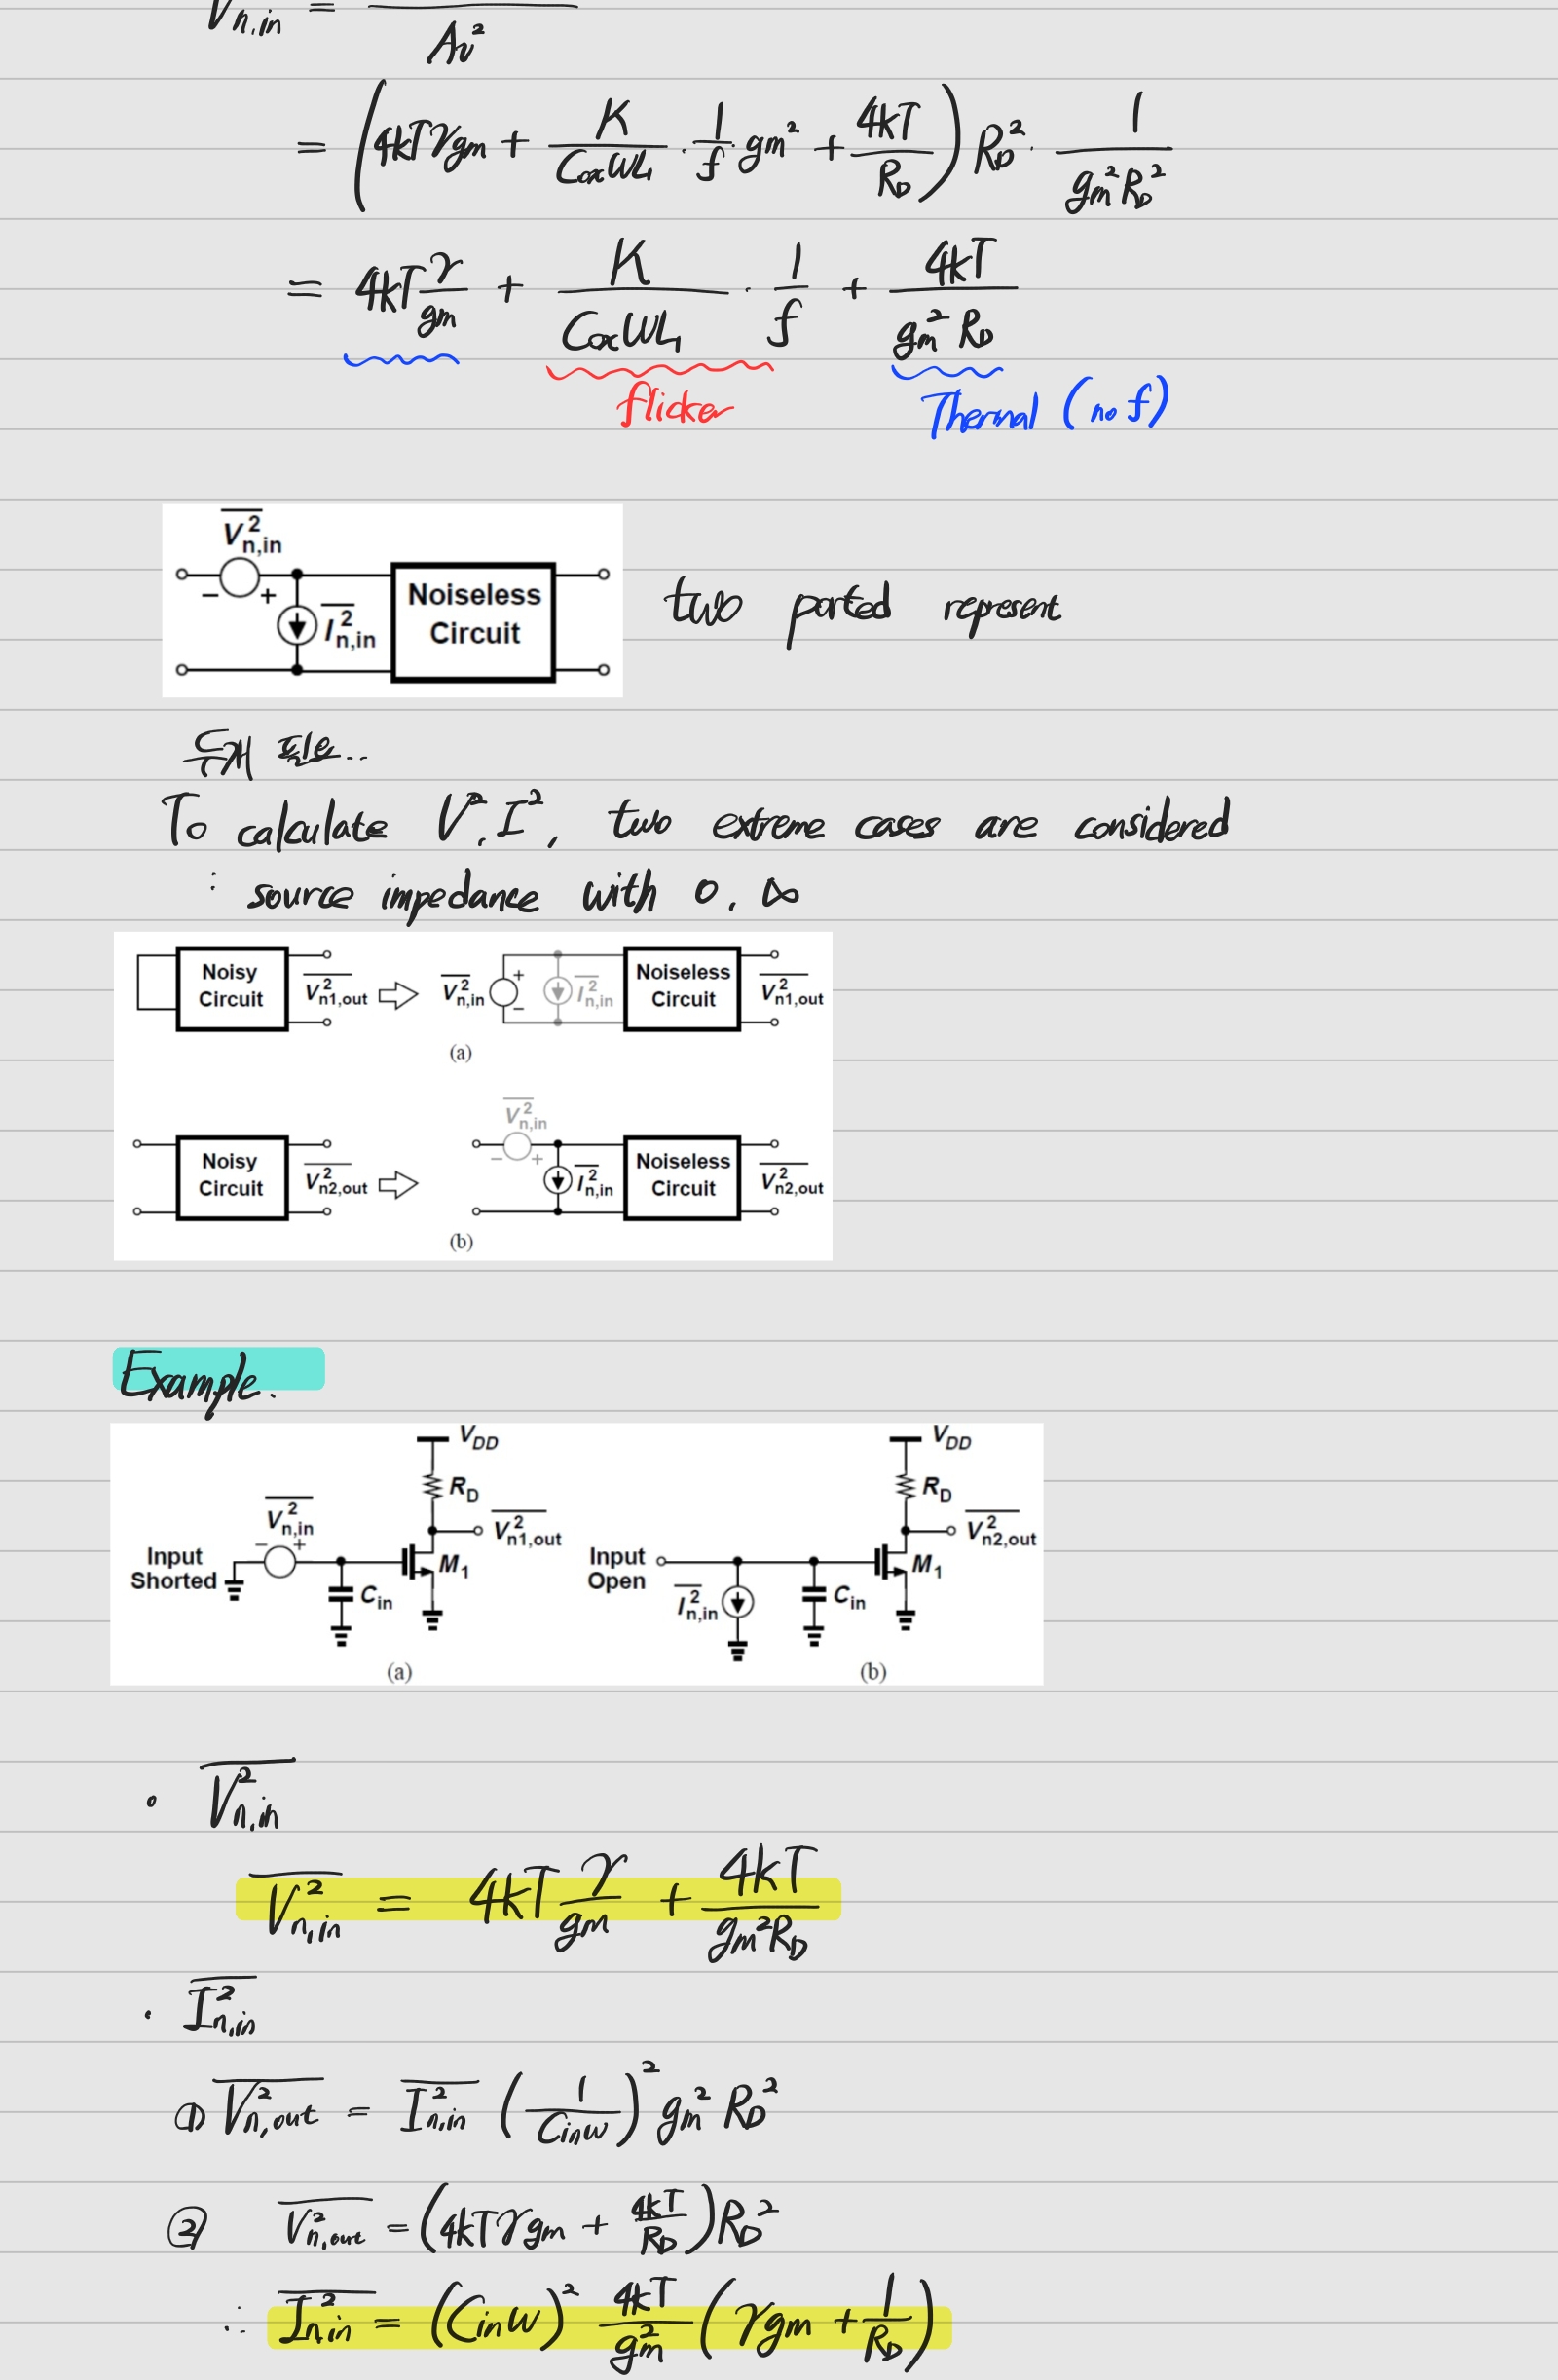 V_{n,in} = ──── / Av²
= (4kTγgm + K/(CoxWL) · 1/f · gm² + 4kT/R_D) R_D² · 1/(gm²R_D²)
= 4kT γ/gm + K/(CoxWL) · 1/f + 4kT/(gm² R_D)
flicker
Thermal (no f)
V²n,in
− +
I²n,in
Noiseless Circuit
two ported represent
To calculate V², I², two extreme cases are considered
: source impedance with 0, ∞
Noisy Circuit V²n1,out ⇒ V²n,in + − I²n,in Noiseless Circuit V²n1,out
(a)
Noisy Circuit V²n2,out ⇒ V²n,in − + I²n,in Noiseless Circuit V²n2,out
(b)
Example.
Input Shorted V²n,in − + Cin M1 RD VDD V²n1,out
(a)
Input Open I²n,in Cin M1 RD VDD V²n2,out
(b)
· V²n,in
V²n,in = 4kT γ/gm + 4kT/(gm²R_D)
· I²n,in
① V²n,out = I²n,in (1/(Cinω))² gm² R_D²
② V²n,out = (4kTγgm + 4kT/R_D) R_D²
∴ I²n,in = (Cinω)² 4kT/gm² (γgm + 1/R_D)